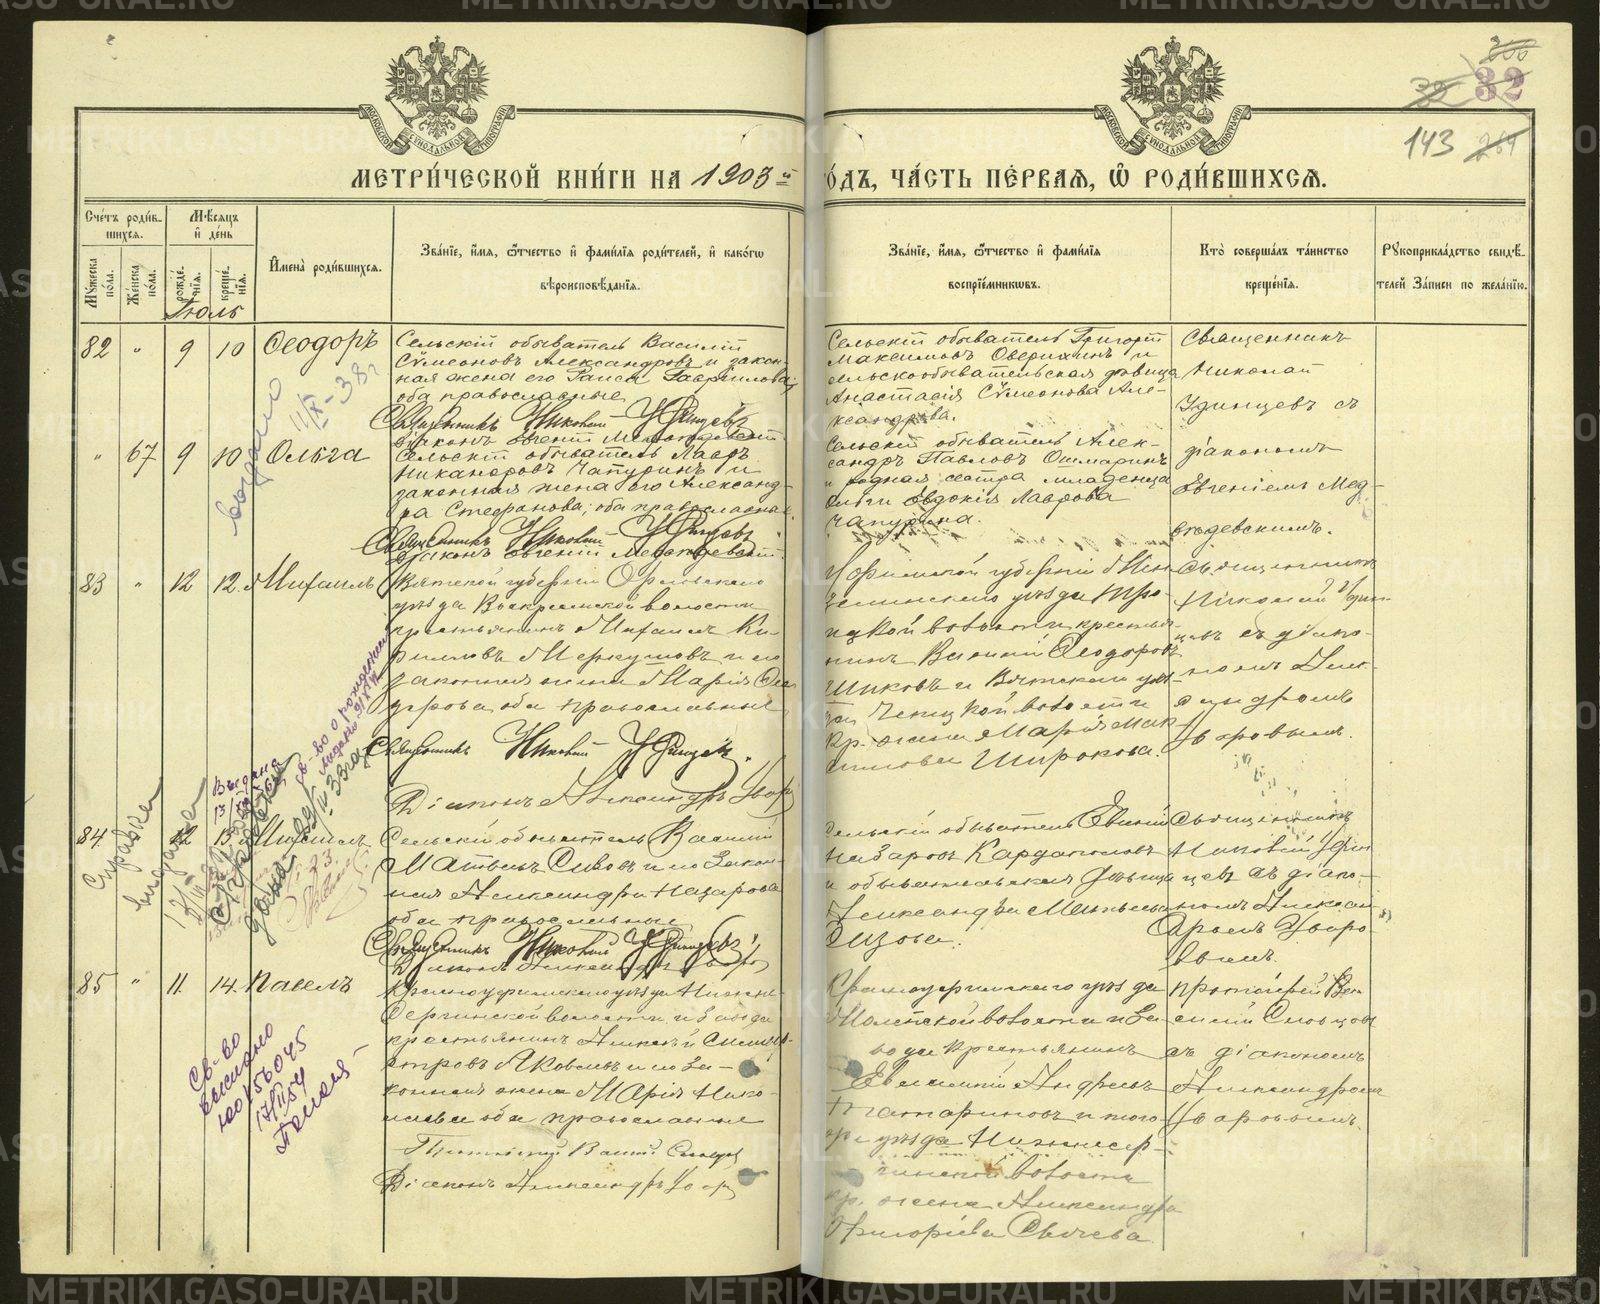 МЕТРИ́ЧЕСКОЙ КНИ́ГИ НА 1903 й
ГО́ДЪ, ЧА́СТЬ ПЕ́РВАЯ, Ѡ РОДИ́ВШИХСЯ.
32
143
Сче́тъ роди́в-
шихся.
Му́жеска по́ла.
Же́нска по́ла.
Мѣ́сяцъ
и́ де́нь
рожде́нїя.
креще́нїя.
И́мена̀ роди́вшихся.
Зва́нїе, и́мя, ѻ́тчество и́ фами́лїя роди́телей, и́ како́гѡ
вѣроисповѣ́данїя.
Зва́нїе, и́мя, ѻ́тчество и́ фами́лїя
воспрїе́мникѡвъ.
Кто̀ соверша́лъ та́инство
креще́нїя.
Рꙋкоприкла́дство свидѣ́-
телей за́писи по жела́нїю.
Іюль
82 " 9 10 Ѳеодоръ
Сельскій обыватель Василій
Сѵмеоновъ Александровъ и закон-
ная жена его Раиса Гавріилова;
оба православные
Священникъ Николай Удинцевъ
Діаконъ Евгеній Медвѣдевскій
Сельскій обыватель Григорій
Максимовъ Оверихинъ и
сельскообывательская дѣвица
Анастасія Сѵмеонова Але-
ксандрова.
Священникъ
Николай
Удинцевъ съ
діакономъ
Евгеніемъ Мед-
вѣдевскимъ.
" 67 9 10 Ольга
Сельскій обыватель Лавръ
Никаноровъ Чапуринъ и
законная жена его Александ-
ра Стефанова; оба православн.
Священникъ Николай Удинцевъ
Діаконъ Евгеній Медвѣдевскій
Сельскій обыватель Алек-
сандръ Павловъ Ошмаринъ
и родная сестра младенца
Ольги Евдокія Лаврова
Чапурина.
выдано
11/X-38г
83 " 12 12. Михаилъ
Вятской губерніи Орловскаго
уѣзда Воскресенской волости
крестьянинъ Михаилъ Ки-
рилловъ Меркушовъ и его
законная жена Марія Ѳео-
дорова, оба православные
Священникъ Николай Удинцевъ.
Діаконъ Александръ Уваро
губерніи Мен-
зелинскаго уѣзда Тро-
ицкой волости крестья-
нинъ Василій Ѳеодоровъ
Шиковъ и Вятскаго уѣз-
да Чепецкой волости
кр. жена Марія Мак-
симова Широкова.
Священникъ
Николай Удин-
цевъ съ діако-
номъ Алек-
сандромъ
Уваровымъ.
св-во о рождении
выдано
84 " 12 13 Михаилъ
Сельскій обыватель Василій
Матвѣевъ Сизовъ и его закон-
ная Александра Назарова
оба православные
Священникъ Николай Удинцевъ
Діаконъ Александръ Уваро
Сельскій обыватель Евгеній
Назаровъ Кардаполовъ
и обывательская дѣвица
Александра Матвѣева
Сизова.
Священникъ
Николай Удин-
цевъ съ діако-
номъ Алексан-
дромъ Уваро-
вымъ.
Справка
выдана
Выдана
85 " 11. 14. Павелъ
Красноуфимскаго уѣзда Нижне-
Сергинской волости и завода
крестьянинъ Алексѣй Силиве-
стровъ Яковлевъ и его за-
конная жена Марія Нико-
лаева оба православные
Протоіерей Василій Словцовъ
Діаконъ Александръ Уваро
Красноуфимскаго уѣзда
волости и за-
вода крестьянинъ
Евгеній Андреевъ
Татариновъ и того
же уѣзда Нижнесер-
гинской волости
кр. жена Александра
Григоріева Сычева.
Протоіерей Ва-
силій Словцовъ
съ діакономъ
Александромъ
Уваровымъ.
Св-во
выслано
ЮО № 456045
17/II 54
METRIKI.GASO-URAL.RU